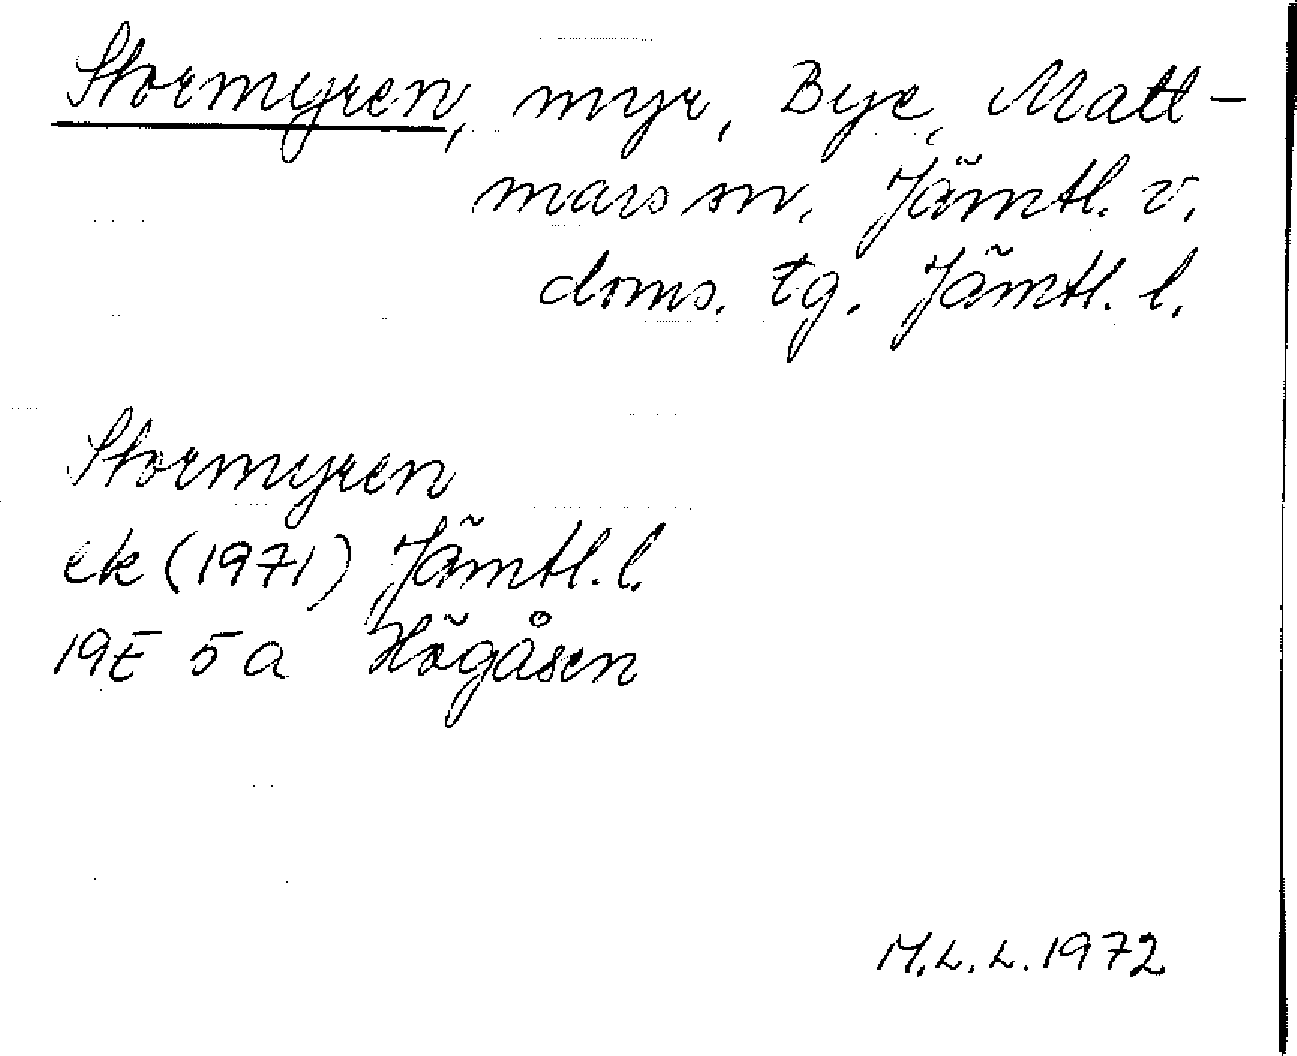 Stormyren, myr, Bye, Matt-
mars sn. Jämtl. v.
doms. tg. Jämtl. l.
Stormyren
ek (1971) Jämtl. l.
19E 5a Högåsen
M.L.L. 1972